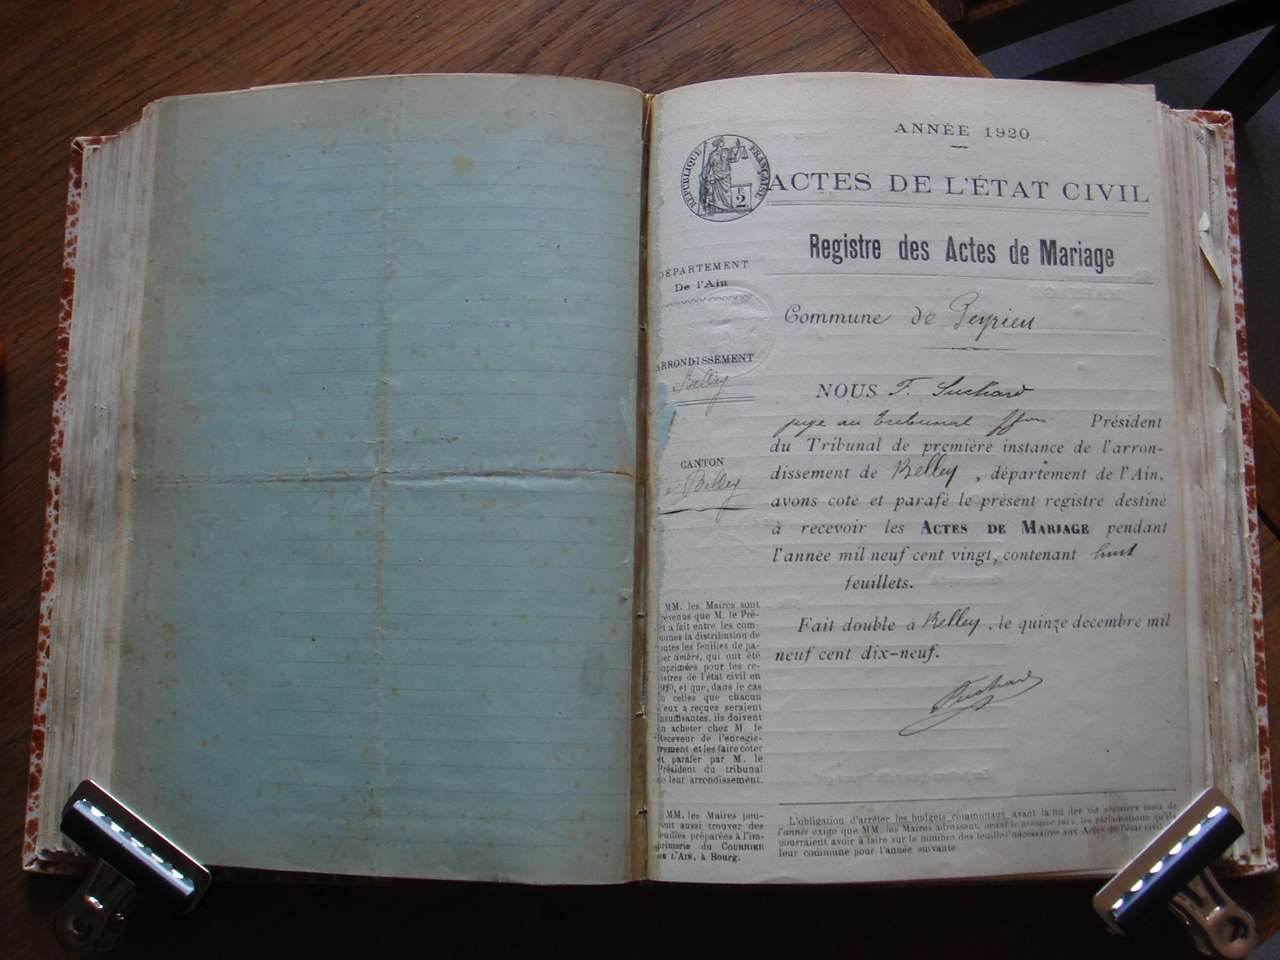 ANNÉE 1920
RÉPUBLIQUE FRANÇAISE
2
ACTES DE L'ÉTAT CIVIL
Registre des Actes de Mariage
DÉPARTEMENT
De l'Ain
ARRONDISSEMENT
Belley
CANTON
Belley
Commune de Peyrieu
NOUS F. Suchard
juge au Tribunal ffon Président
du Tribunal de première instance de l'arron-
dissement de Belley, département de l'Ain,
avons coté et parafé le présent registre destiné
à recevoir les ACTES DE MARIAGE pendant
l'année mil neuf cent vingt, contenant huit
feuillets.
Fait double à Belley, le quinze décembre mil
neuf cent dix-neuf.
Suchard
MM. les Maires sont
évenus que M. le Pré-
et a fait entre les com-
unes la distribution de
outes les feuilles de pa-
er timbré, qui ont été
mprimées pour les re-
istres de l'état civil en
920, et que, dans le cas
ù celles que chacun
'eux a reçues seraient
nsuffisantes, ils doivent
n acheter chez M. le
Receveur de l'enregis-
trement et les faire coter
et parafer par M. le
Président du tribunal
de leur arrondissement.
MM. les Maires peu-
ent aussi trouver des
euilles préparées à l'im-
primerie du COURRIER
DE L'AIN, à Bourg.
L'obligation d'arrêter les budgets communaux avant la fin des six premiers mois de
l'année exige que MM. les Maires adressent, avant le premier les réclamations qu'ils
pourraient avoir à faire sur le nombre des feuilles nécessaires aux Actes de l'état civil
leur commune pour l'année suivante